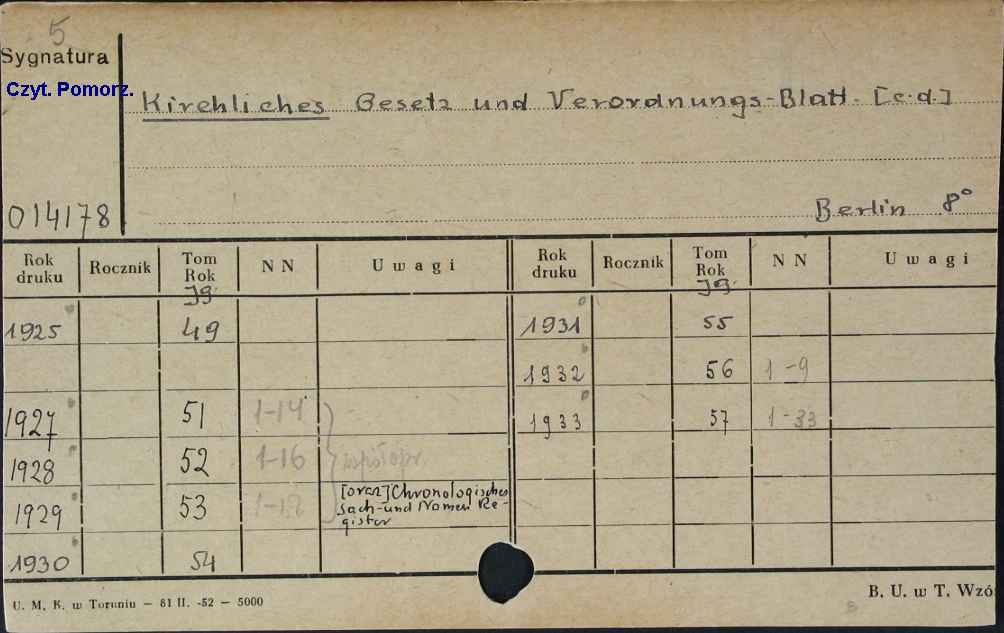 5
Sygnatura
Czyt. Pomorz.
Kirchliches Gesetz und Verordnungs-Blatt. [c.d.]
014178
Berlin 8°
Rok druku Rocznik Tom Rok NN Uwagi Rok druku Rocznik Tom Rok NN Uwagi
Jg. Jg.
1925 49 1931 55
1932 56 1-9
1927 51 1-14 1933 57 1-33
1928 52 1-16 współopr.
1929 53 [oraz] Chronologisches
Sach-und Namen Re-
gister
1930 54
U. M. K. w Toruniu – 81 II. -52 – 5000
B. U. w T. Wzó